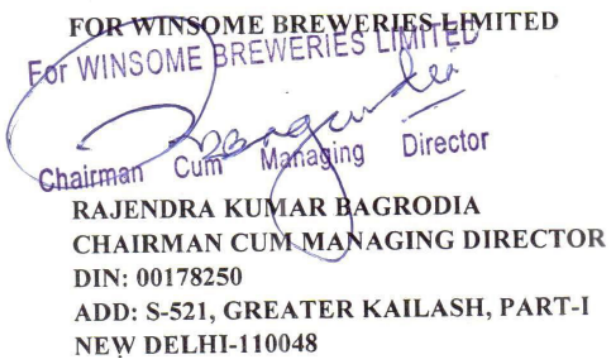 FOR WINSOME BREWERIES LIMITED
For WINSOME BREWERIES LIMITED
Chairman Cum Managing Director
RAJENDRA KUMAR BAGRODIA
CHAIRMAN CUM MANAGING DIRECTOR
DIN: 00178250
ADD: S-521, GREATER KAILASH, PART-I
NEW DELHI-110048